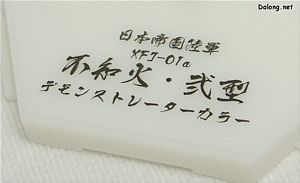 Dalong.net
日本帝國陸軍
XFJ-01a
不知火・弐型
デモンストレーターカラー